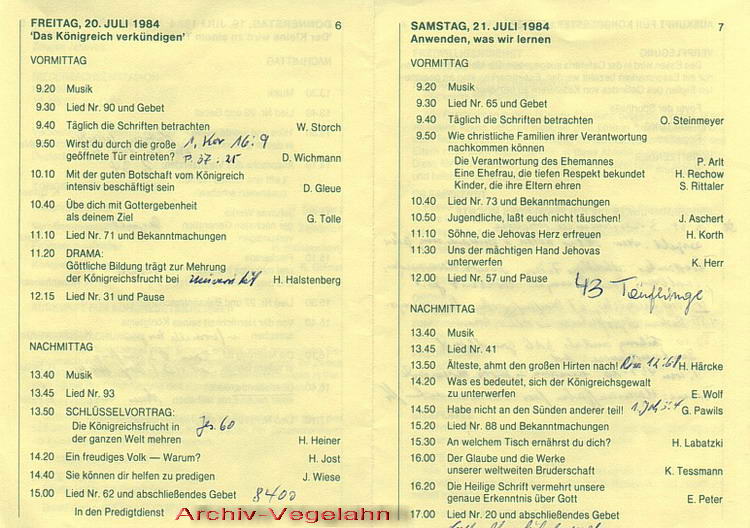 FREITAG, 20. JULI 1984 6
‘Das Königreich verkündigen’
VORMITTAG
9.20 Musik
9.30 Lied Nr. 90 und Gebet
9.40 Täglich die Schriften betrachten W. Storch
9.50 Wirst du durch die große 1. Kor 16:9
geöffnete Tür eintreten? P. 37:25 D. Wichmann
10.10 Mit der guten Botschaft vom Königreich
intensiv beschäftigt sein D. Gleue
10.40 Übe dich mit Gottergebenheit
als deinem Ziel G. Tolle
11.10 Lied Nr. 71 und Bekanntmachungen
11.20 DRAMA:
Göttliche Bildung trägt zur Mehrung
der Königreichsfrucht bei H. Halstenberg
12.15 Lied Nr. 31 und Pause
NACHMITTAG
13.40 Musik
13.45 Lied Nr. 93
13.50 SCHLÜSSELVORTRAG:
Die Königreichsfrucht in Jes. 60
der ganzen Welt mehren H. Heiner
14.20 Ein freudiges Volk — Warum? H. Jost
14.40 Sie können dir helfen zu predigen J. Wiese
15.00 Lied Nr. 62 und abschließendes Gebet 8400
In den Predigtdienst
Archiv-Vegelahn
SAMSTAG, 21. JULI 1984 7
Anwenden, was wir lernen
VORMITTAG
9.20 Musik
9.30 Lied Nr. 65 und Gebet
9.40 Täglich die Schriften betrachten O. Steinmeyer
9.50 Wie christliche Familien ihrer Verantwortung
nachkommen können
Die Verantwortung des Ehemannes P. Arlt
Eine Ehefrau, die tiefen Respekt bekundet H. Rechow
Kinder, die ihre Eltern ehren S. Rittaler
10.40 Lied Nr. 73 und Bekanntmachungen
10.50 Jugendliche, laßt euch nicht täuschen! J. Aschert
11.10 Söhne, die Jehovas Herz erfreuen H. Korth
11.30 Uns der mächtigen Hand Jehovas
unterwerfen K. Herr
12.00 Lied Nr. 57 und Pause
43 Täuflinge
NACHMITTAG
13.40 Musik
13.45 Lied Nr. 41
13.50 Älteste, ahmt den großen Hirten nach! H. Härcke
14.20 Was es bedeutet, sich der Königreichsgewalt
zu unterwerfen E. Wolf
14.50 Habe nicht an den Sünden anderer teil! G. Pawils
15.20 Lied Nr. 88 und Bekanntmachungen
15.30 An welchem Tisch ernährst du dich? H. Labatzki
16.00 Der Glaube und die Werke
unserer weltweiten Bruderschaft K. Tessmann
16.20 Die Heilige Schrift vermehrt unsere
genaue Erkenntnis über Gott E. Peter
17.00 Lied Nr. 20 und abschließendes Gebet